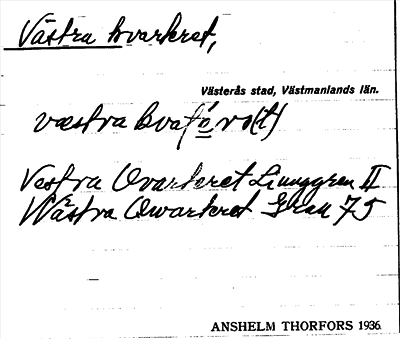 Västra kvarteret,
Västerås stad, Västmanlands län.
Vestra Qvarteret Ljunggren II
Wästra Qwarteret Grau 75
ANSHELM THORFORS 1936.